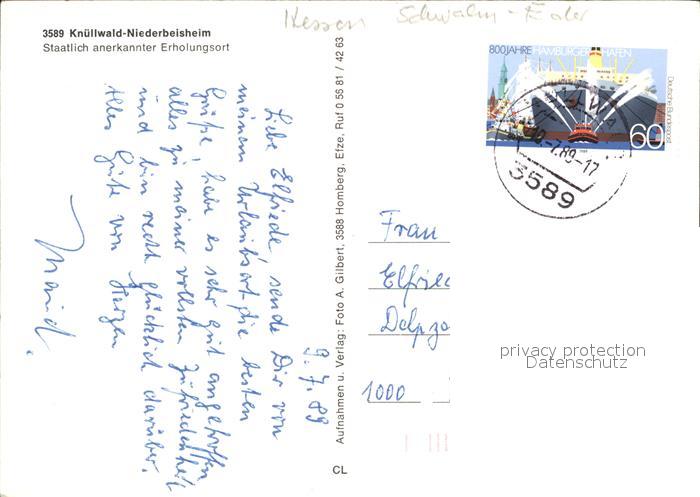 Hessen Schwalm-Eder
3589 Knüllwald-Niederbeisheim
Staatlich anerkannter Erholungsort
9. 7. 89
Liebe Elfriede, sende Dir von
meinem Urlaubsort die besten
Grüße, habe es sehr gut angetroffen
alles zu meiner vollsten Zufriedenheit
und bin recht glücklich darüber.
Alles Gute von Herzen
Aufnahmen u. Verlag: Foto A. Gilbert, 3588 Homberg, Efze, Ruf 0 56 81 / 42 63
CL
800 JAHRE HAMBURGER HAFEN
Deutsche Bundespost
60
-7.89-17
3589
Frau
Elfriede
1000
privacy protection
Datenschutz